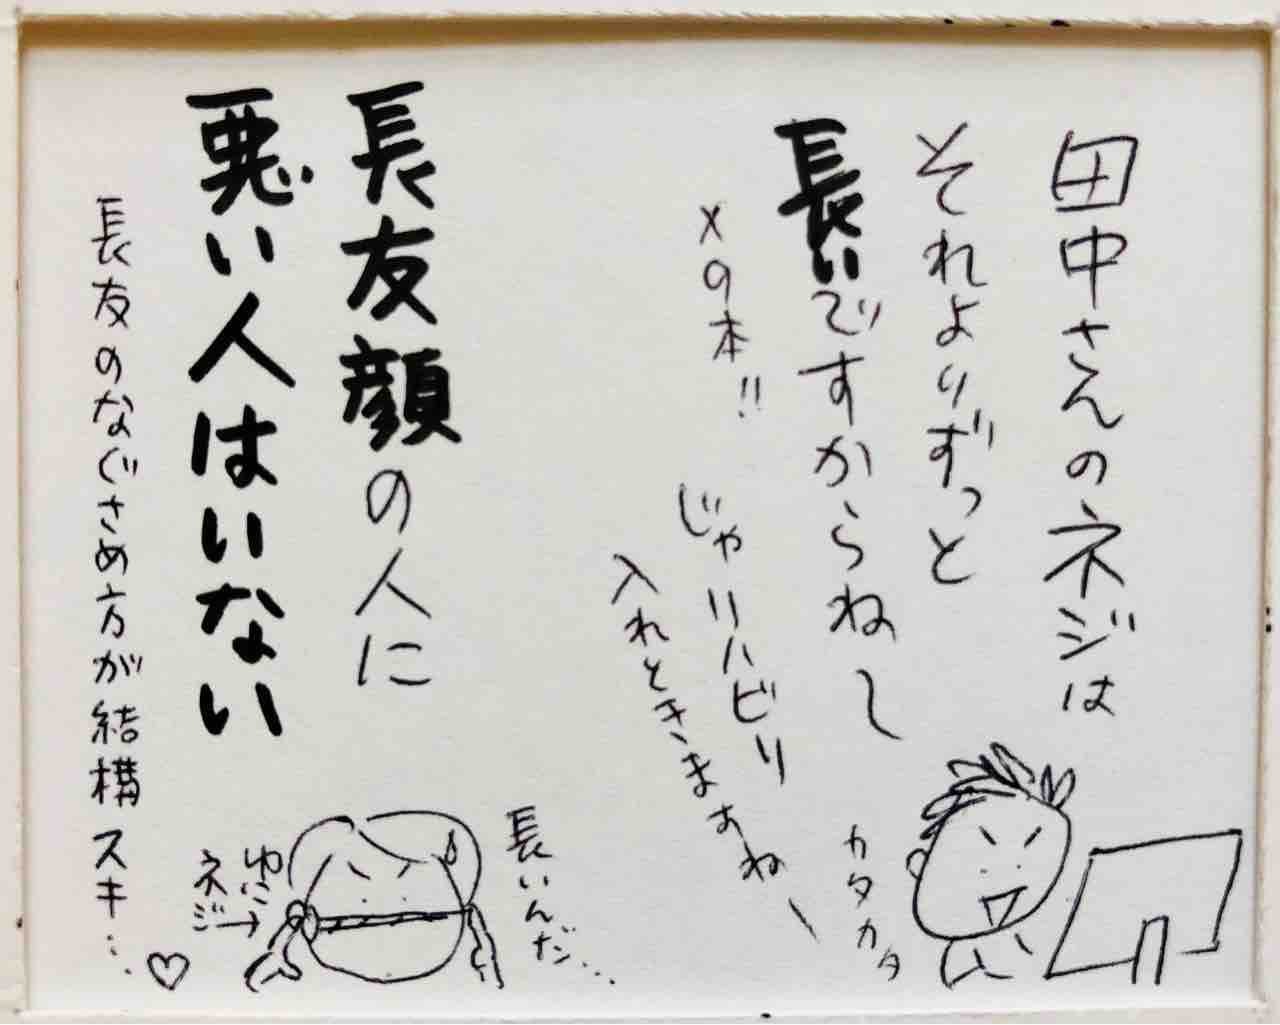 田中さんのネジは
それよりずっと
長いですからねー
×9本!!
じゃリハビリ
入れときますねー
カタカタ
長友顔の人に
悪い人はいない
長いんだ…
ゆいこ
ネジ→
長友のなぐさめ方が結構スキ…♡